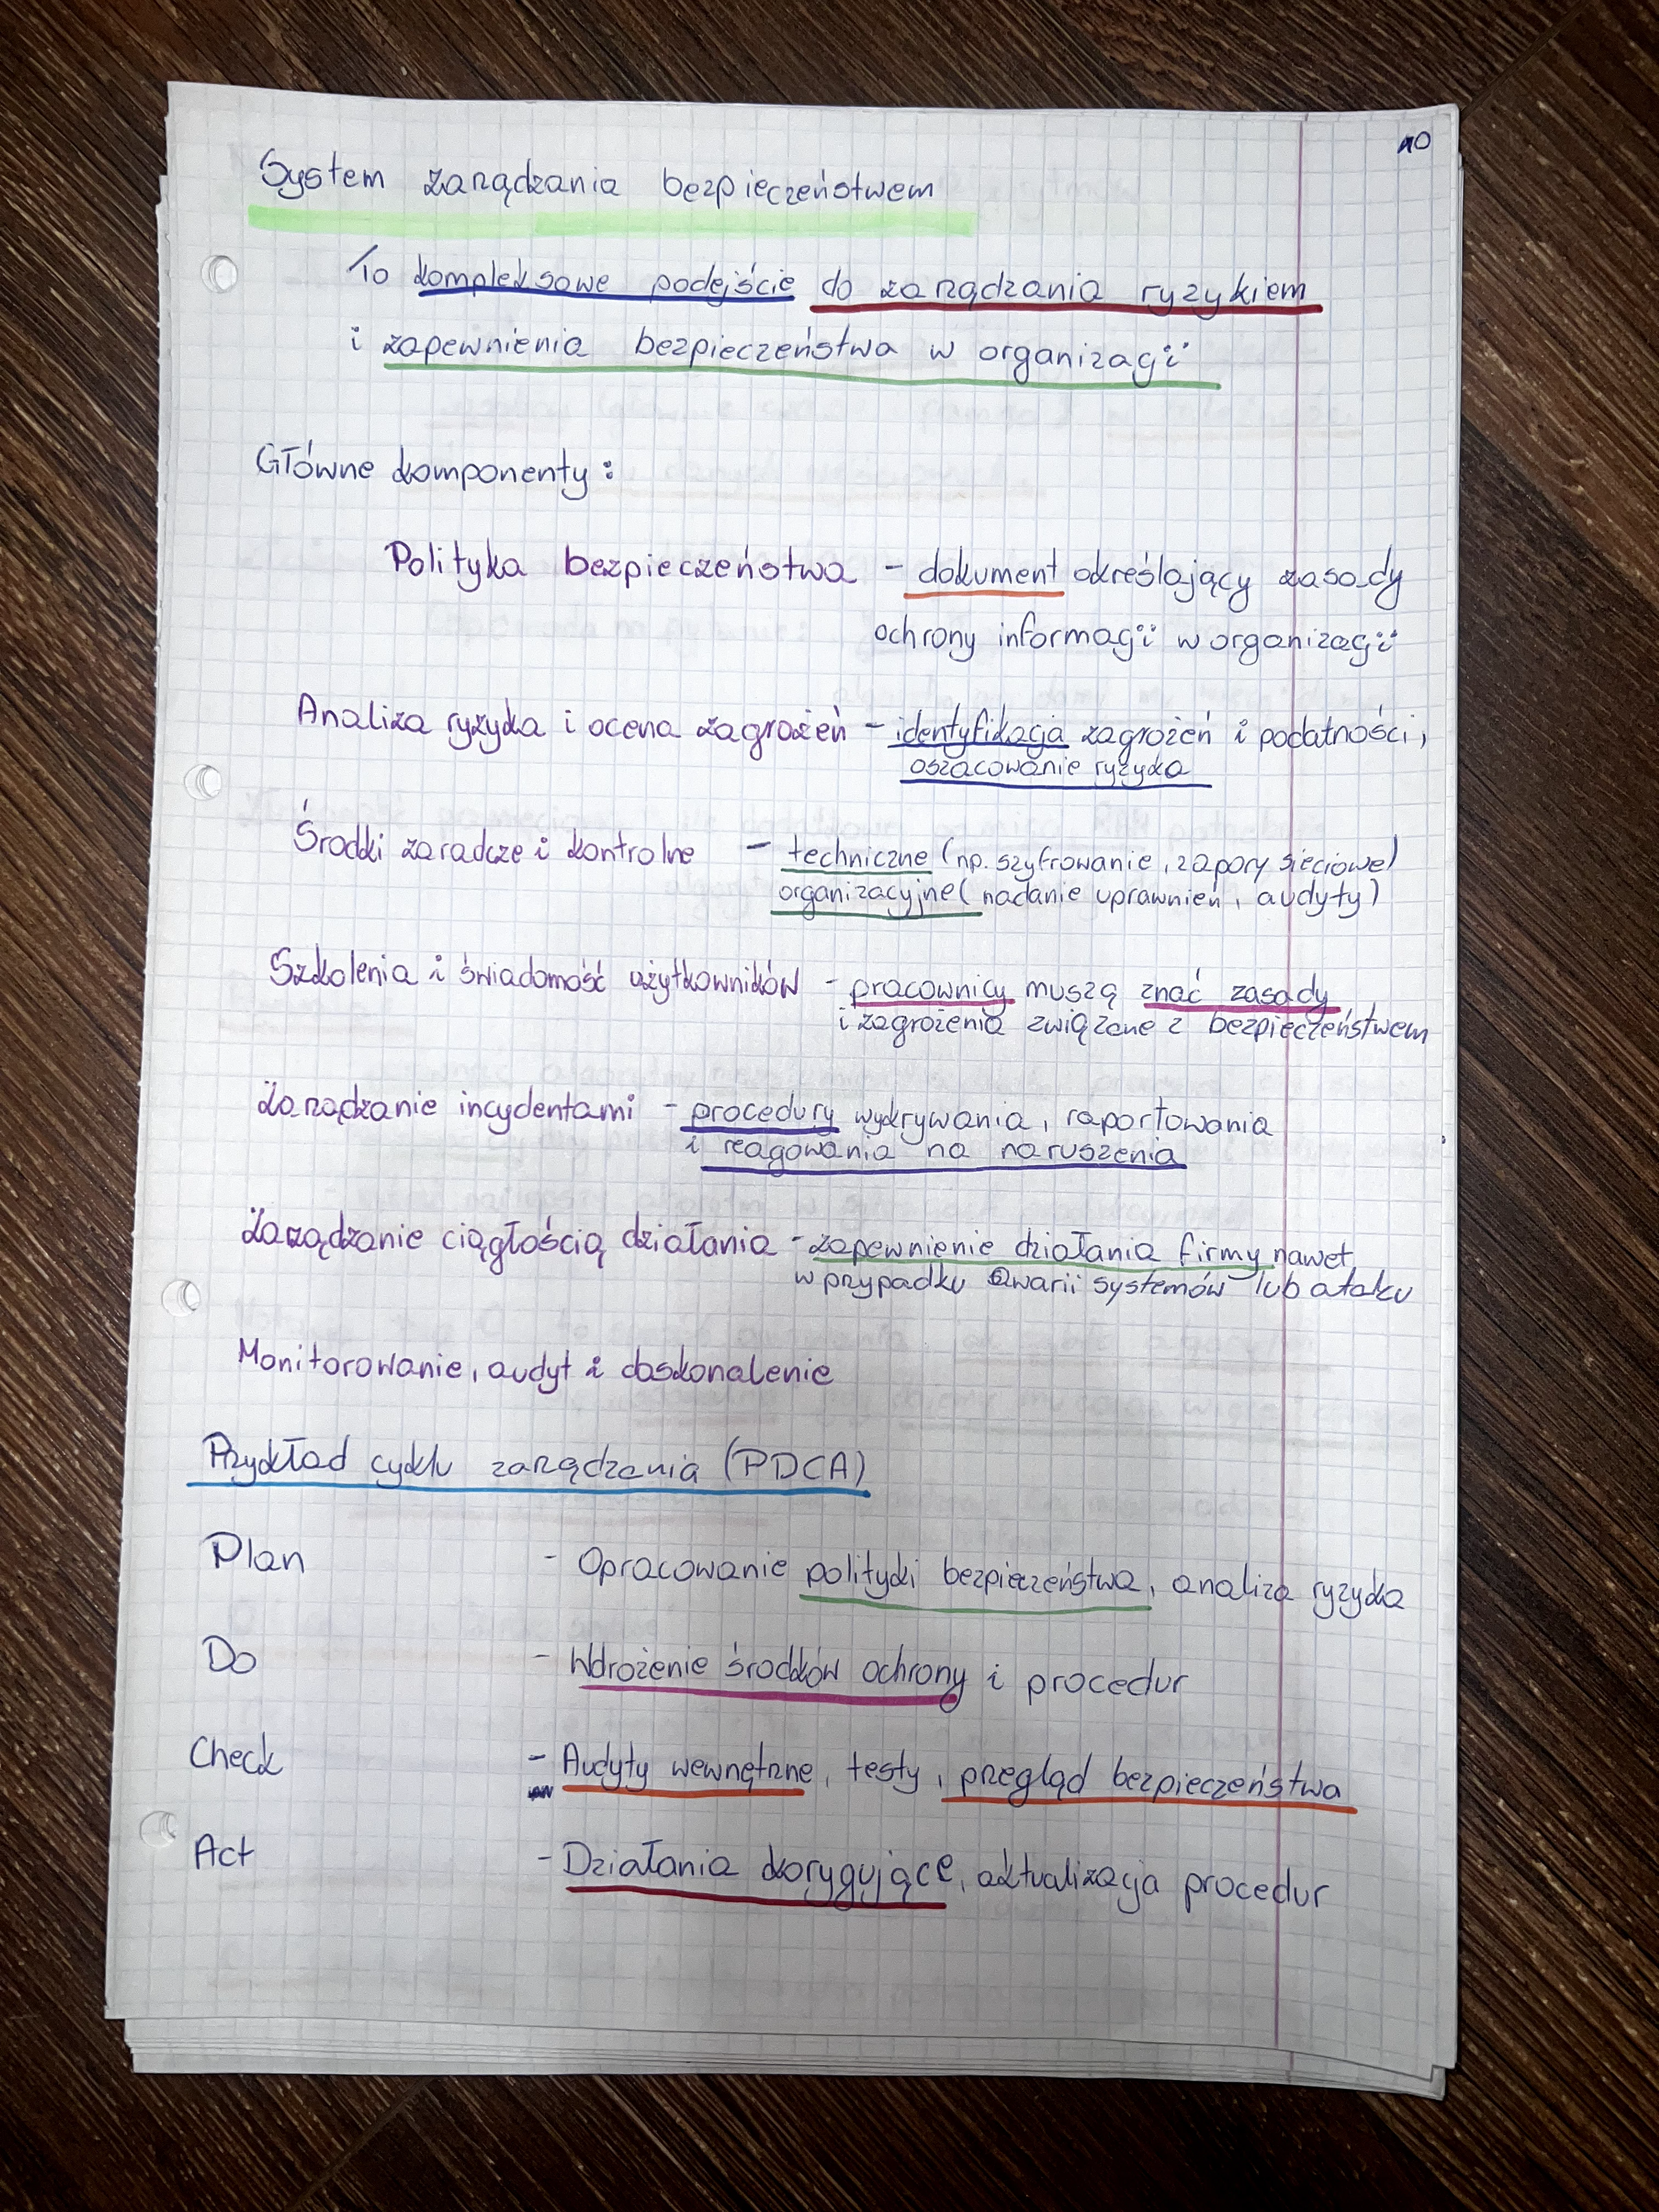 10
System zarządzania bezpieczeństwem
To kompleksowe podejście do zarządzania ryzykiem
i zapewnienia bezpieczeństwa w organizacji
Główne komponenty:
Polityka bezpieczeństwa - dokument określający zasady
ochrony informacji w organizacji
Analiza ryzyka i ocena zagrożeń - identyfikacja zagrożeń i podatności,
oszacowanie ryzyka
Środki zaradcze i kontrolne - techniczne (np. szyfrowanie, zapory sieciowe)
organizacyjne (nadanie uprawnień, audyty)
Szkolenia i świadomość użytkowników - pracownicy muszą znać zasady
i zagrożenia związane z bezpieczeństwem
Zarządzanie incydentami - procedury wykrywania, raportowania
i reagowania na naruszenia
Zarządzanie ciągłością działania - zapewnienie działania firmy nawet
w przypadku awarii systemów lub ataku
Monitorowanie, audyt i doskonalenie
Przykład cyklu zarządzania (PDCA)
Plan - Opracowanie polityki bezpieczeństwa, analiza ryzyka
Do - Wdrożenie środków ochrony i procedur
Check - Audyty wewnętrzne, testy, przegląd bezpieczeństwa
Act - Działania korygujące, aktualizacja procedur